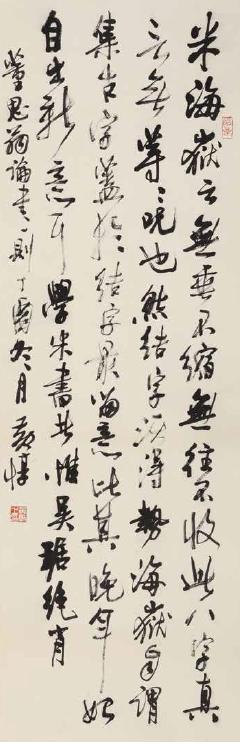 米海嶽云無垂不縮無往不收此八字真
言無等等呪也然結字須得勢海嶽自謂
集古字蓋於結字最留意比其晚年始
自出新意耳學米書者惟吳琚絕肖
董思翁論書一則丁酉冬月